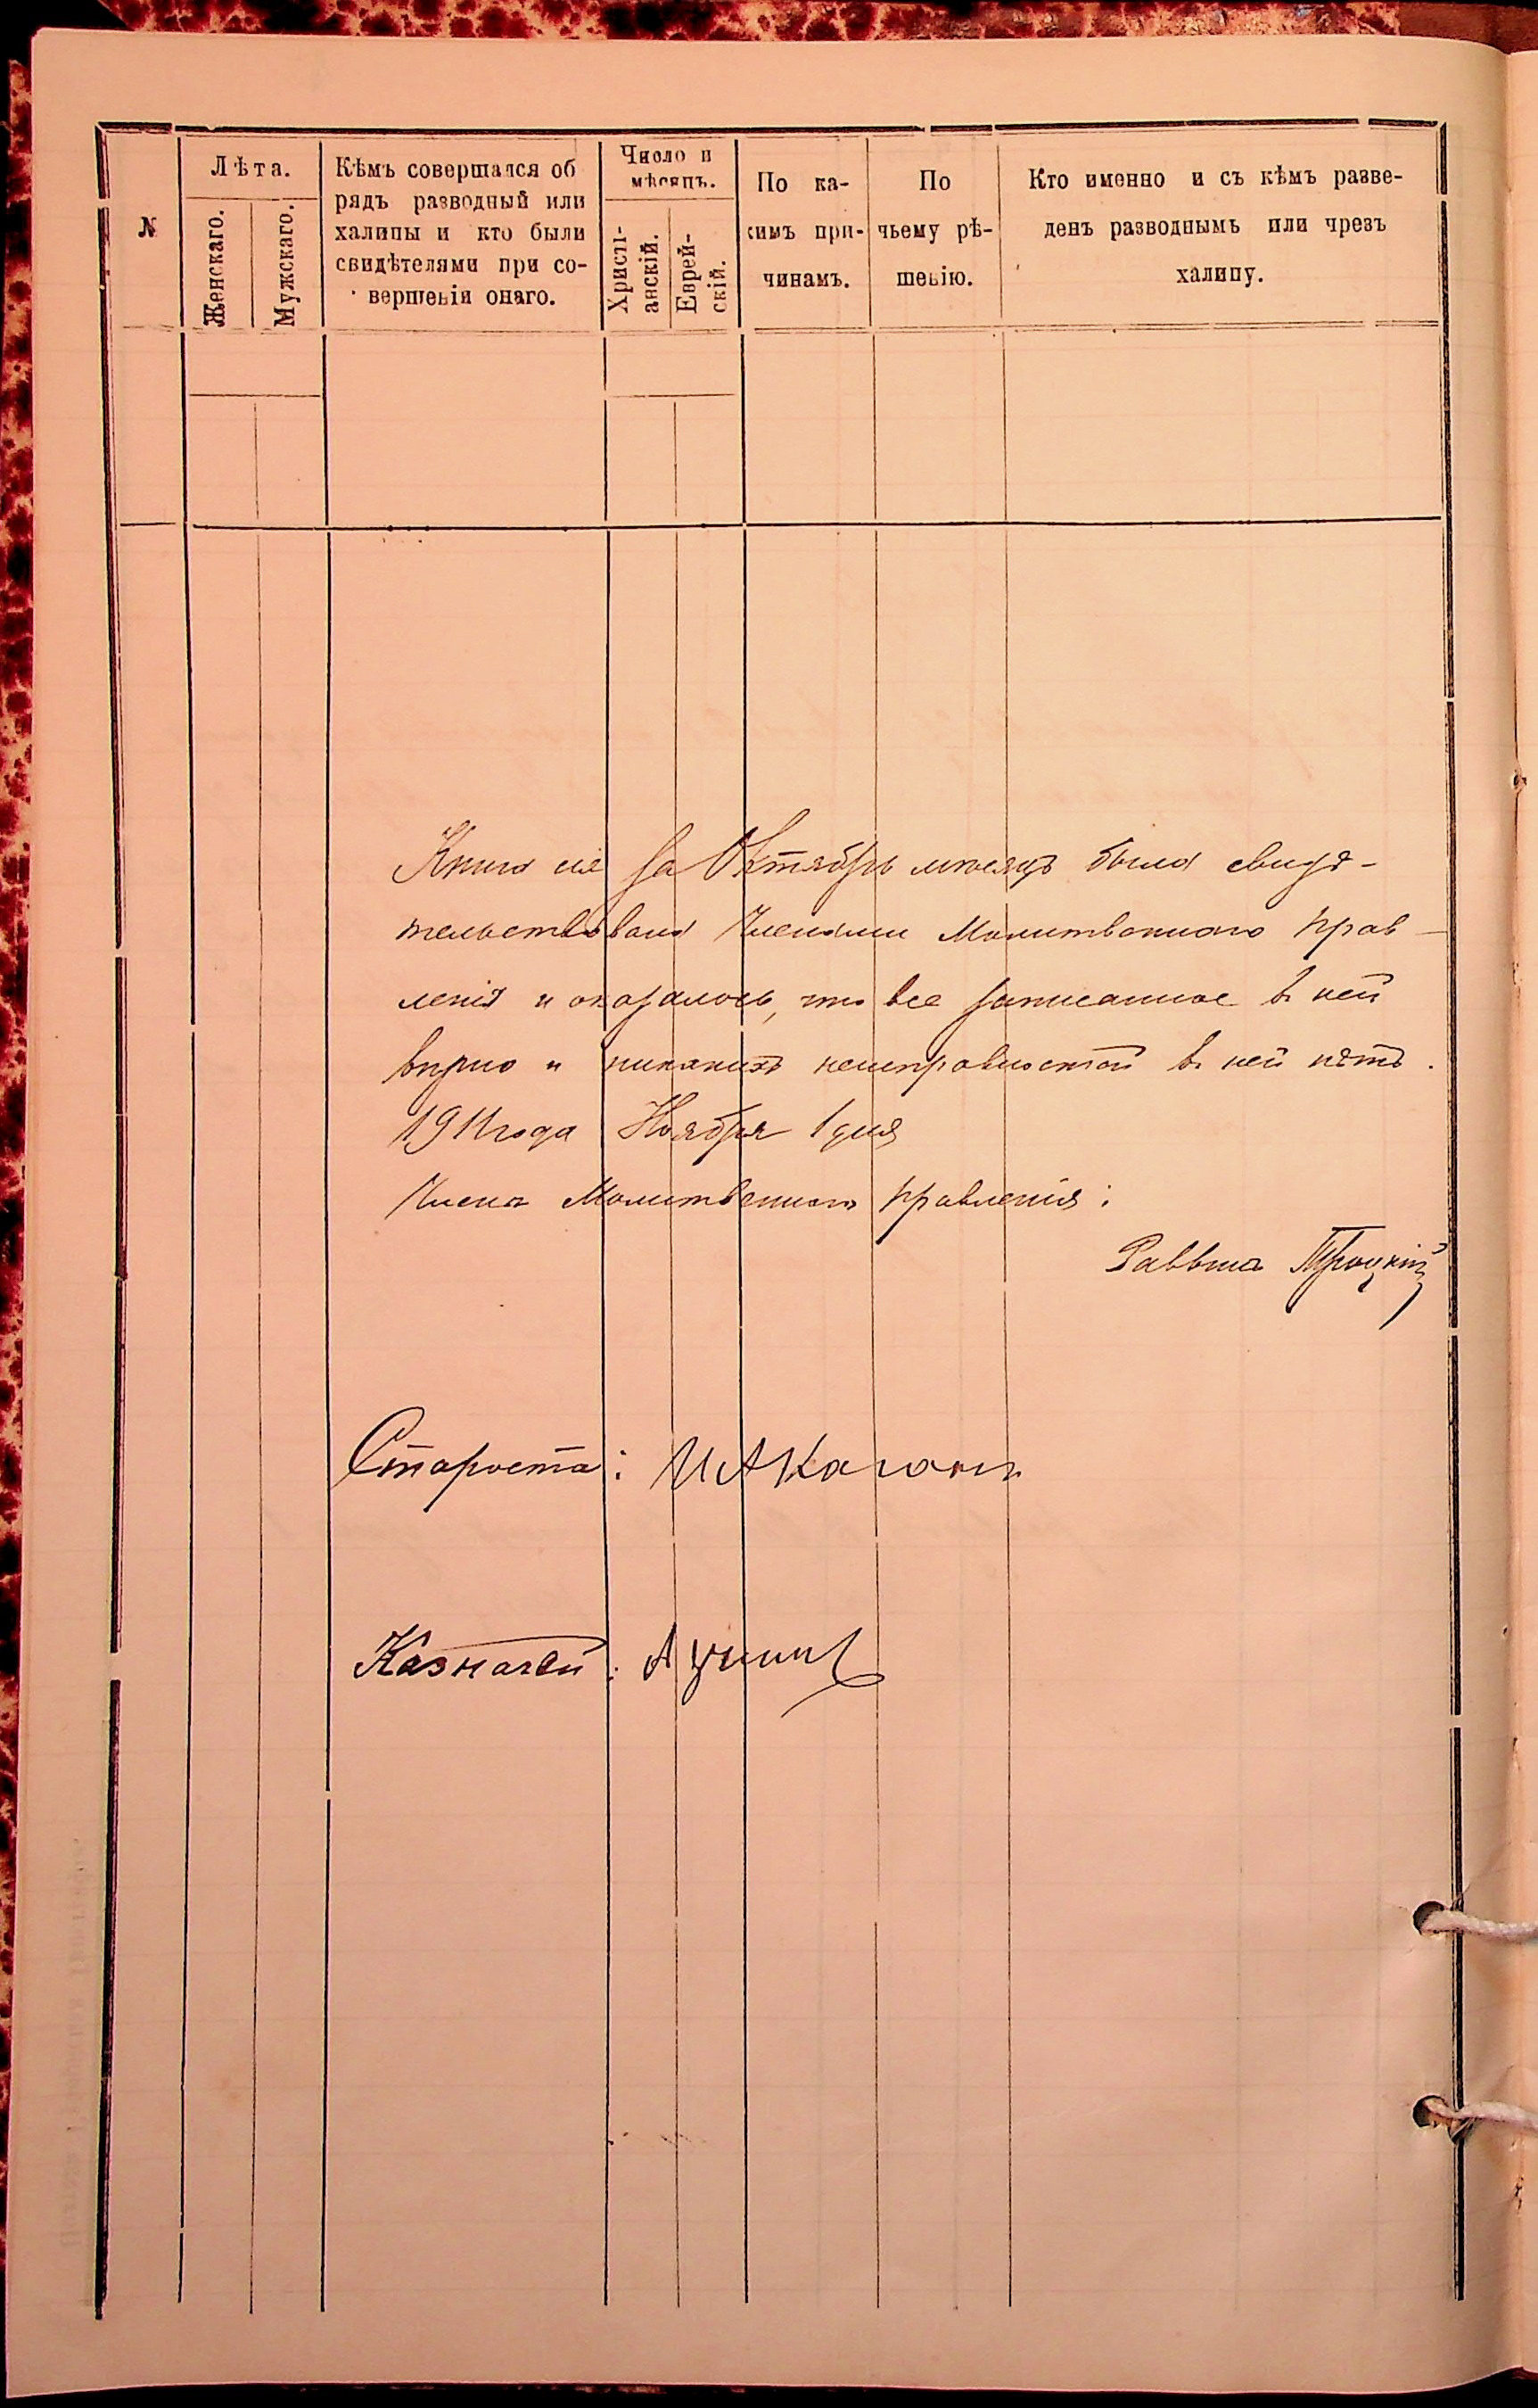 №
Лѣта.
Женскаго.
Мужскаго.
Кѣмъ совершался об
рядъ разводный или
халицы и кто были
свидѣтелями при со-
вершеніи онаго.
Число и
мѣсяцъ.
Христі-
анскій.
Еврей-
скій.
По ка-
кимъ при-
чинамъ.
По
чьему рѣ-
шенію.
Кто именно и съ кѣмъ разве-
денъ разводнымъ или чрезъ
халицу.
Книга сія за Октябрь мѣсяцъ была свидѣ-
тельствована Членами Молитвеннаго прав-
ленія и оказалось, что все записанное въ ней
вѣрно и никакихъ неисправностей въ ней нѣтъ.
1911 года Ноября 1 дня
Члены Молитвеннаго правленія:
Раввинъ Троцкій
Староста: И А Каганъ
Казначей: А